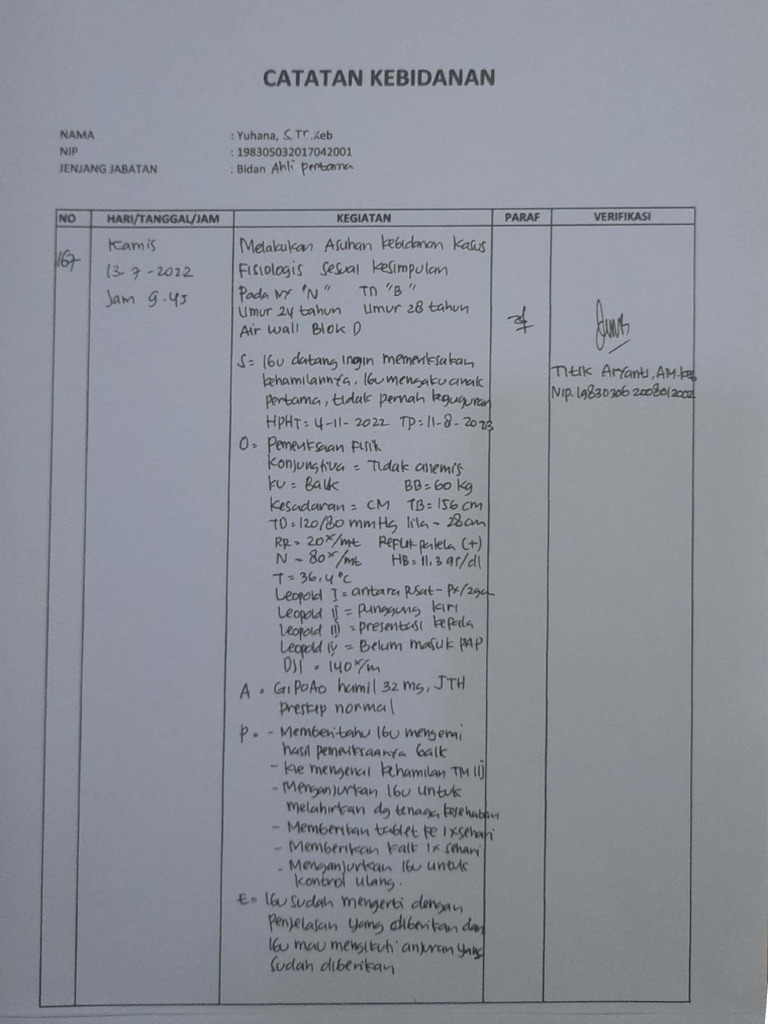 CATATAN KEBIDANAN
NAMA : Yuhana, S.Tr.Keb
NIP : 198305032017042001
JENJANG JABATAN : Bidan Ahli Pertama
NO HARI/TANGGAL/JAM KEGIATAN PARAF VERIFIKASI
167 Kamis Melakukan Asuhan kebidanan kasus
13-7-2022 Fisiologis sesuai kesimpulan
Jam 9.45 Pada NY "N" Tn "B"
Umur 24 tahun Umur 28 tahun
Air Wall Blok D
S = Ibu datang ingin memeriksakan
kehamilannya, Ibu mengaku anak
pertama, tidak pernah keguguran
HPHT = 4-11-2022 TP = 11-8-2023
Titik Aryanti, AM.Keb
NIP. 19830306 200801 2002
O = Pemeriksaan Fisik
Konjungtiva = Tidak anemis
KU = Baik BB = 60 kg
Kesadaran = CM TB = 156 cm
TD = 120/80 mmHg lila = 28 cm
RR = 20x/mt Reflek patela (+)
N = 80x/mt HB = 11,3 gr/dl
T = 36,4°C
Leopold I = antara pusat - px/2gd
Leopold II = punggung kiri
Leopold III = presentasi kepala
Leopold IV = Belum masuk PAP
DJJ = 140x/m
A = G1P0A0 hamil 32 mg, JTH
preskep normal
P = - Memberitahu Ibu mengenai
hasil pemeriksaannya baik
- kie mengenai kehamilan TM III
- Menganjurkan Ibu untuk
melahirkan dg tenaga kesehatan
- Memberikan tablet Fe 1x sehari
- Memberikan kalk 1x sehari
- Menganjurkan Ibu untuk
kontrol ulang.
E = Ibu sudah mengerti dengan
penjelasan yang diberikan dan
Ibu mau mengikuti anjuran yang
sudah diberikan